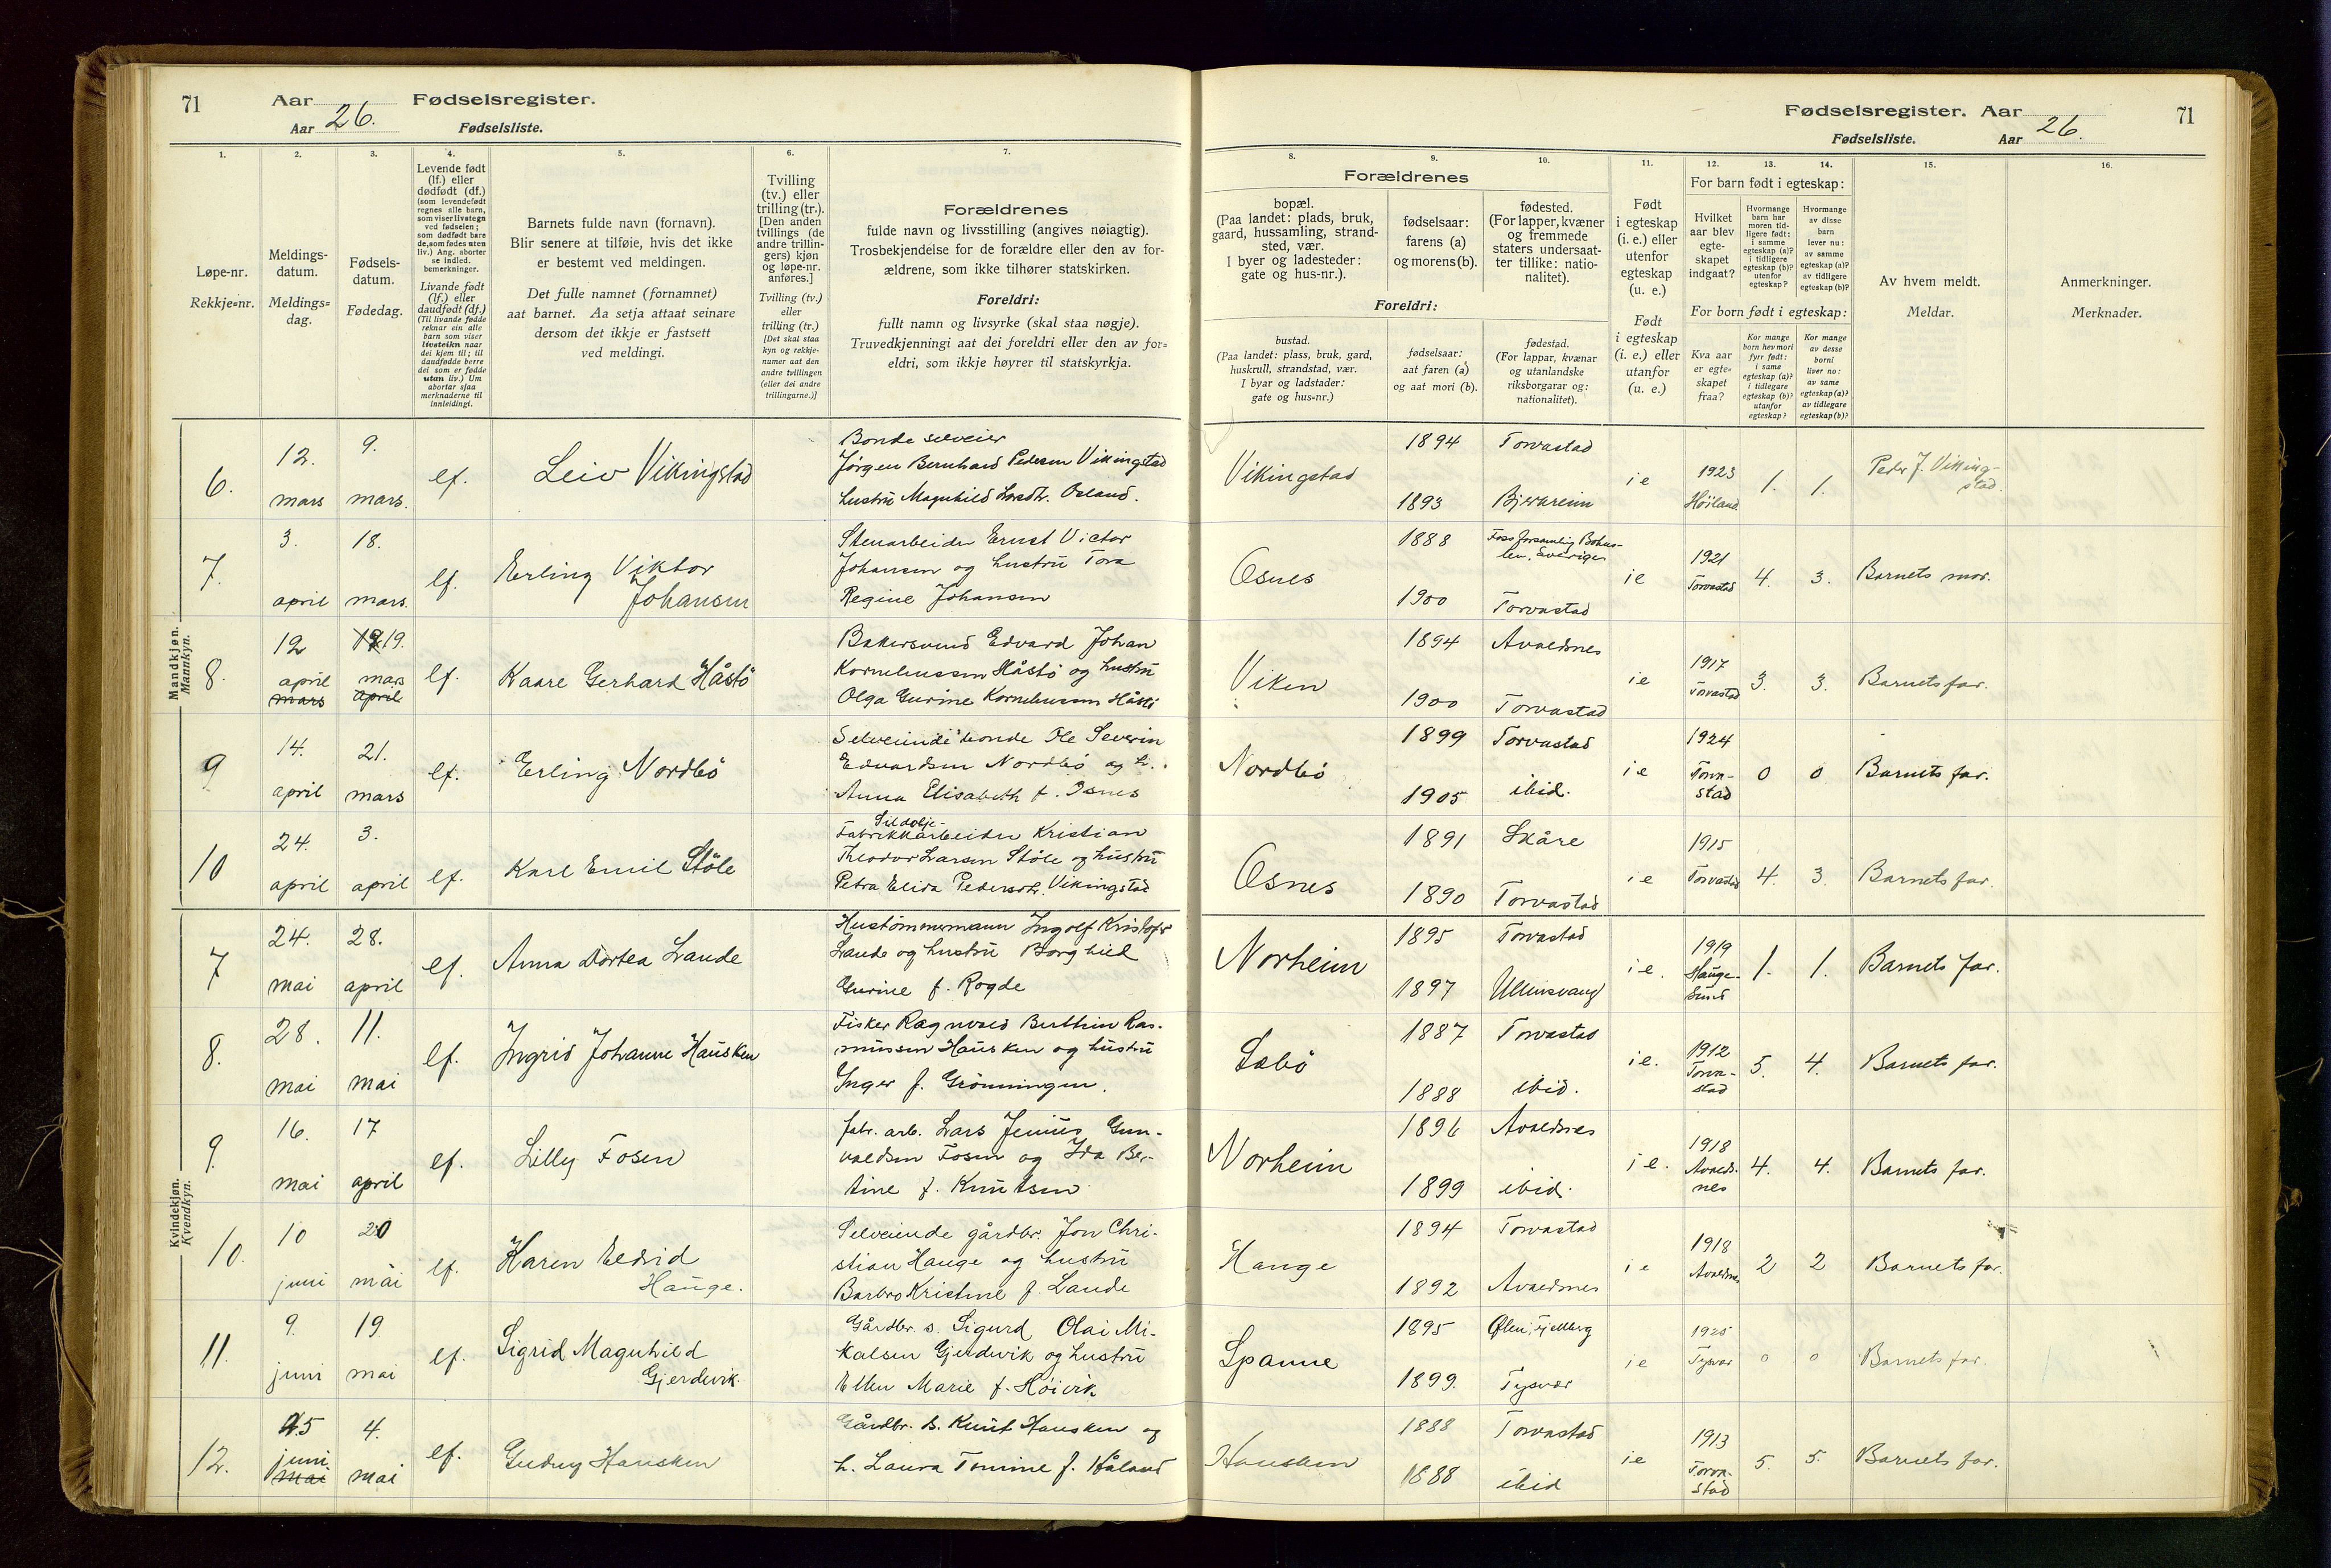 71
Aar
Fødselsregister.
Aar 26.
Fødselsliste.
1.
Løpe-nr.
Rekkje=nr.
2.
Meldings-
datum.
Meldings=
dag.
3.
Fødsels-
datum.
Fødedag.
4.
Levende født
(lf.) eller
dødfødt (df.)
(som levendefødt
regnes alle barn,
som viser livstegn
ved fødselen;
som dødfødt bare
de, som fødes uten
liv.) Ang. aborter
se indled.
bemerkninger.
Livande født
(lf.) eller
daudfødt (df.)
(Til livande fødde
reknar ein alle
barn som viser
livsteikn naar
dei kjem til; til
daudfødde berre
dei som er fødde
utan liv.) Um
abortar sjaa
merknaderne til
innleidingi.
5.
Barnets fulde navn (fornavn).
Blir senere at tilføie, hvis det ikke
er bestemt ved meldingen.
Det fulle namnet (fornamnet)
aat barnet. Aa setja attaat seinare
dersom det ikkje er fastsett
ved meldingi.
6.
Tvilling
(tv.) eller
trilling (tr.).
[Den anden
tvillings (de
andre trillin-
gers) kjøn
og løpe-nr.
anføres.]
Tvilling (tv.)
eller
trilling (tr.)
[Det skal staa
kyn og rekkje-
numer aat den
andre tvillingen
(eller dei andre
trillingarne.)]
7.
Forældrenes
fulde navn og livsstilling (angives nøiagtig).
Trosbekjendelse for de forældre eller den av for-
ældrene, som ikke tilhører statskirken.
Foreldri:
fullt namn og livsyrke (skal staa nøgje).
Truvedkjenningi aat dei foreldri eller den av for=
eldri, som ikkje høyrer til statskyrkja.
Mandkjøn.
Mannkyn.
6.
12.
mars
9.
mars.
lf.
Leiv Vikingstad
Bonde selveier
Jørgen Bernhard Pedersen Vikingstad
hustru Magnhild Larsdtr. Osland.
7.
3.
april
18.
mars.
lf.
Erling Viktor
Johansen
Stenarbeider Ernst Victor
Johansen og hustru Tora
Regine Johansen
8.
12
april
mars
19.
mars
april
lf.
Kaare Gerhard Håstø
Bakersvend Edvard Johan
Korneliussen Håstø og hustru
Olga Gurine Korneliussen Håstø
9
14.
april
21.
mars
lf.
Erling Nordbö
Selveiende bonde Ole Severin
Edvardsen Nordbö og h.
Anna Elisabeth f. Osnes
10
24.
april
3.
april
lf.
Karl Emil Stöle
Sildolje-
Fabrikkarbeider Kristian
Theodor Larsen Stöle og hustru
Petra Elida Pedersdtr. Vikingstad
Kvindekjøn.
Kvendkyn.
7
24.
mai
28.
april
lf.
Anna Dortea Lande
Hustömmermann Ingolf Kristofer
Lande og hustru Borghild
Gurine f. Rogde
8.
28.
mai
11.
mai
lf.
Ingrid Johanne Hausken
Fisker Ragnvald Berthin Ras-
mussen Hausken og hustru
Inger f. Grönningen.
9.
16.
mai
17
april
lf.
Lilly Fosen
fabr. arb. Lars Jenius Gun-
valdsen Fosen og Ida Ber-
tine f. Knutsen
10.
10
juni
20
mai
lf.
Karen Eldrid
Hauge.
Selveiende gårdbr. Jon Chri-
stian Hauge og hustru
Barbro Kristine f. Lande
11.
9.
juni
19
mai
lf.
Sigrid Magnhild
Gjerdevik
Gårdbr. s. Sigurd Olai Mi-
kalsen Gjerdevik og hustru
Ellen Marie f. Höivik
12.
15
juni
mai
4.
mai
lf.
Gudny Hausken
Gårdbr. s. Knut Hausken og
h. Laura Tomine f. Håland
Fødselsregister. Aar
71
Fødselsliste.
Aar 26.
8.
Forældrenes
bopæl.
(Paa landet: plads, bruk,
gaard, hussamling, strand-
sted, vær.
I byer og ladesteder:
gate og hus-nr.).
Foreldri:
bustad.
(Paa landet: plass, bruk, gard,
huskrull, strandstad, vær.
I byar og ladstader:
gate og hus=nr.)
9.
fødselsaar:
farens (a)
og morens (b).
fødselsaar:
aat faren (a)
og aat mori (b).
10.
fødested.
(For lapper, kvæner
og fremmede
staters undersaat-
ter tillike: natio-
nalitet).
fødestad.
(For lappar, kvænar
og utanlandske
riksborgarar og:
nationalitet).
11.
Født
i egteskap
(i. e.) eller
utenfor
egteskap
(u. e.)
Født
i egteskap
(i. e.) eller
utanfor
(u. e.)
12.
13.
14.
For barn født i egteskap:
Hvilket
aar blev
egte-
skapet
indgaat?
Hvormange
barn har
moren tid-
ligere født:
i samme
egteskap (a)?
i tidligere
egteskap (b)?
utenfor
egteskap?
Hvormange
av disse
barn
lever nu:
av samme
egteskap (a)?
av tidligere
egteskap (b)?
For born født i egteskap:
Kva aar
er egte=
skapet
fraa?
Kor mange
born hev mori
fyrr født:
i same
egteskap (a)?
i tidlegare
egteskap (b)?
utanfor
egteskap?
Kor mange
av desse
borni
liver no:
av same
egteskap (a)?
av tidlegare
egteskap (b)?
15.
Av hvem meldt.
Meldar.
16.
Anmerkninger.
Merknader.
Vikingstad
1894
1893
Torvastad
Bjerkreim
i e
1923
Höiland.
1.
1.
Peder J. Viking-
stad.
Osnes
1888
1900
Foss forsamling Bohus-
len, Sverige
Torvastad
i e
1921
Torvastad
4.
3.
Barnets mor.
Viken
1894
1900
Avaldsnes
Torvastad
i e
1917
Torvastad
3.
3.
Barnets far.
Nordbö
1899
1905
Torvastad
ibid.
i e
1924
Torva-
stad
0
0
Barnets far.
Osnes
1891
1890
Skåre
Torvastad
i e
1915
Torvastad
4.
3.
Barnets far.
Norheim
1895
1897
Torvastad
Ullensvang
i e.
1919
Hauge-
sund
1.
1.
Barnets far.
Sæbö
1887
1888
Torvastad
ibid.
i e.
1912
Torva-
stad
5.
4.
Barnets far.
Norheim
1896
1899
Avaldsnes
ibid.
i e.
1918
Avalds-
nes
4.
4.
Barnets far.
Hauge
1894
1892
Torvastad
Avaldsnes
i e
1918
Avaldsnes
2
2
Barnets far.
Spanne
1895
1899.
Ölen, Fjellberg
Tysvær
i e
1925
Tysvær
0
0
Barnets far.
Hausken
1888
1888
Torvastad
ibid
i e
1913
Torva-
stad
5.
5.
Barnets far.